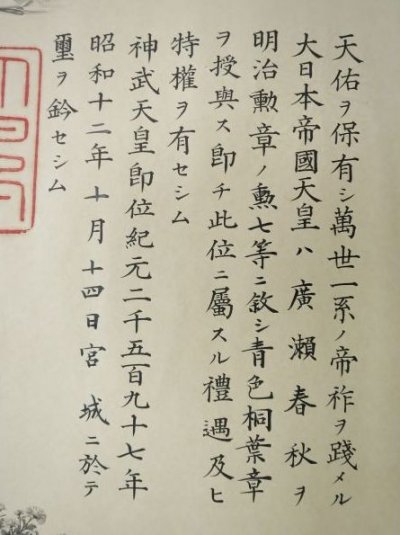 天佑ヲ保有シ萬世一系ノ帝祚ヲ踐メル
大日本帝國天皇ハ廣瀨春秋ヲ
明治勲章ノ勲七等ニ敘シ青色桐葉章
ヲ授與ス卽チ此位ニ屬スル禮遇及ヒ
特權ヲ有セシム
神武天皇卽位紀元二千五百九十七年
昭和十二年十月十四日宮城ニ於テ
璽ヲ鈐セシム